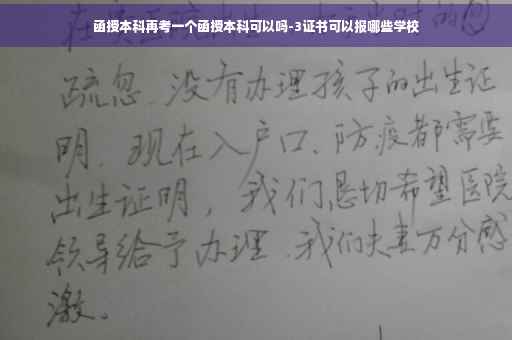 函授本科再考一个函授本科可以吗-3证书可以报哪些学校
疏忽、没有办理孩子的出生证
明、现在入户口、防疫都需要
出生证明，我们恳切希望医院
领导给予办理、我们夫妻万分感
激。